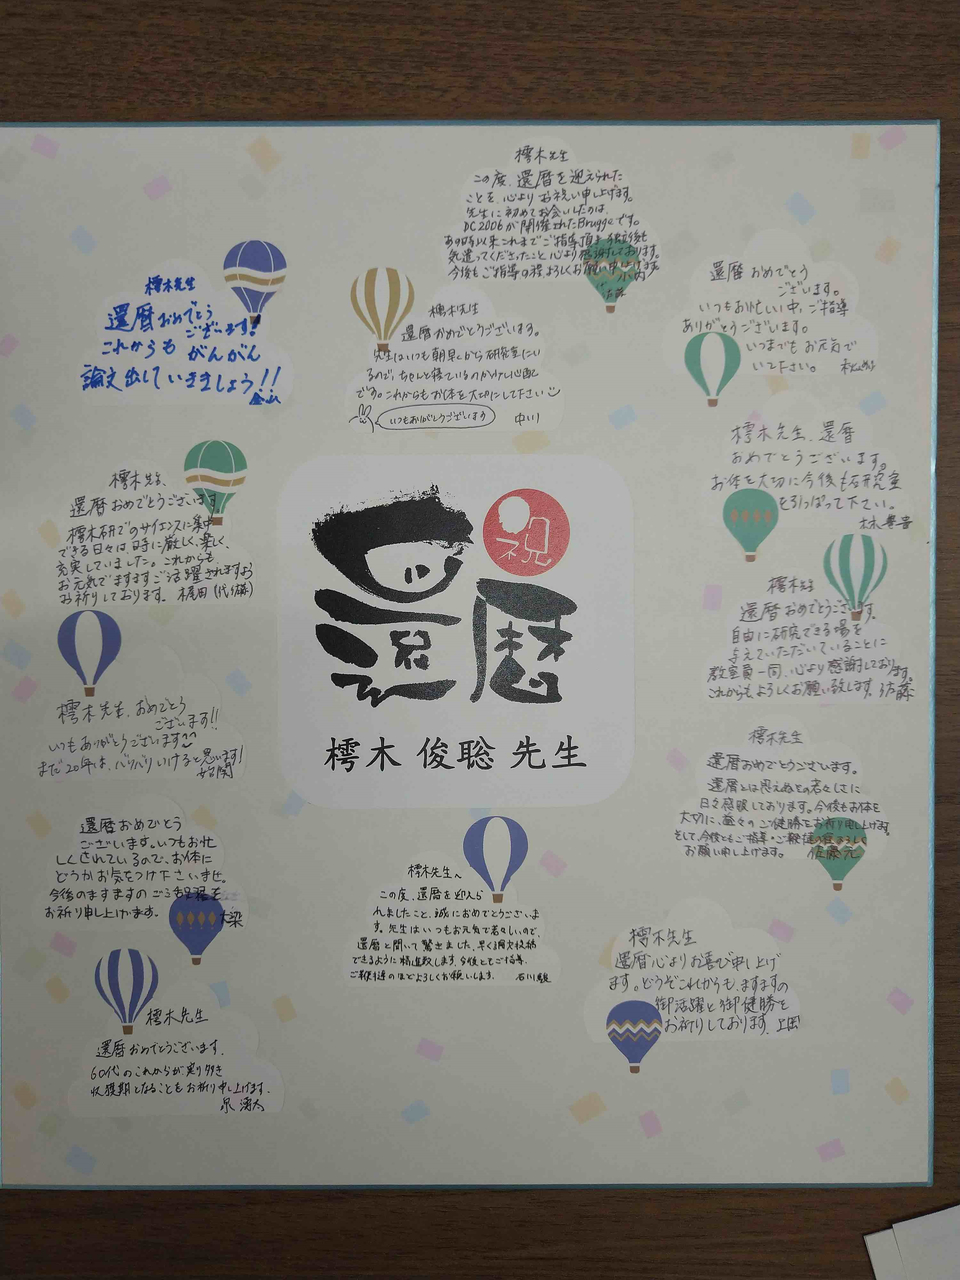 樗木先生
この度、還暦を迎えられた
ことを、心よりお祝い申し上げます。
先生に初めてお会いしたのは、
DC2006が開催されたBruggeです。
あの時以来これまでご指導頂き
気遣ってくださったこと心より感謝しております。
今後もご指導の程よろしくお願い申し上げます
樗木先生
還暦おめでとう
ございます!
これからも がんがん
論文出していきましょう!!
金山
樗木先生
還暦おめでとうございます。
先生はいつも朝早くから研究室にい
るので、ちゃんと寝ているのか少し心配
です。これからもお体を大切にして下さい
いつもありがとうございます
中川
還暦おめでとう
ございます。
いつもお忙しい中、ご指導
ありがとうございます。
いつまでもお元気で
いて下さい。
樗木先生、還暦
おめでとうございます。
お体を大切に今後も研究室
を引っぱって下さい。
樗木先生
還暦おめでとうございます
樗木研でのサイエンスに集中
できる日々は、時に厳しく、楽しく、
充実していました。これからも
お元気でますますご活躍されますよう
お祈りしております。 梶田
祝
還暦
樗木 俊聡 先生
樗木先生
還暦おめでとうございます。
自由に研究できる場を
与えていただいていることに
教室員一同、心より感謝しております。
これからもよろしくお願い致します。佐藤
樗木先生、おめでとう
ございます!!
いつもありがとうございます
まだ20年は、バリバリいけると思います!
樗木先生
還暦おめでとうございます。
還暦とは思えぬその若々しさに
日々感服しております。今後もお体を
大切に、益々のご健勝をお祈り申し上げます。
そして、今後ともご指導・ご鞭撻の程よろしく
お願い申し上げます。 佐藤
還暦おめでとう
ございます。いつもお忙
しくされているので、お体に
どうかお気をつけ下さいませ。
今後のますますのご
お祈り申し上げます。 大梁
樗木先生へ
この度、還暦を迎えら
れましたこと、誠におめでとうございま
す。先生はいつもお元気で若々しいので、
還暦と聞いて驚きました。早く論文投稿
できるように精進致します。今後ともご指導、
ご鞭撻のほどよろしくお願いします。 石川
樗木先生
還暦心よりお喜び申し上げ
ます。どうぞこれからも、ますますの
御活躍と御健勝を
お祈りしております。 上岡
樗木先生
還暦おめでとうございます。
60代のこれからが実り多き
収穫期となることをお祈り申し上げます。